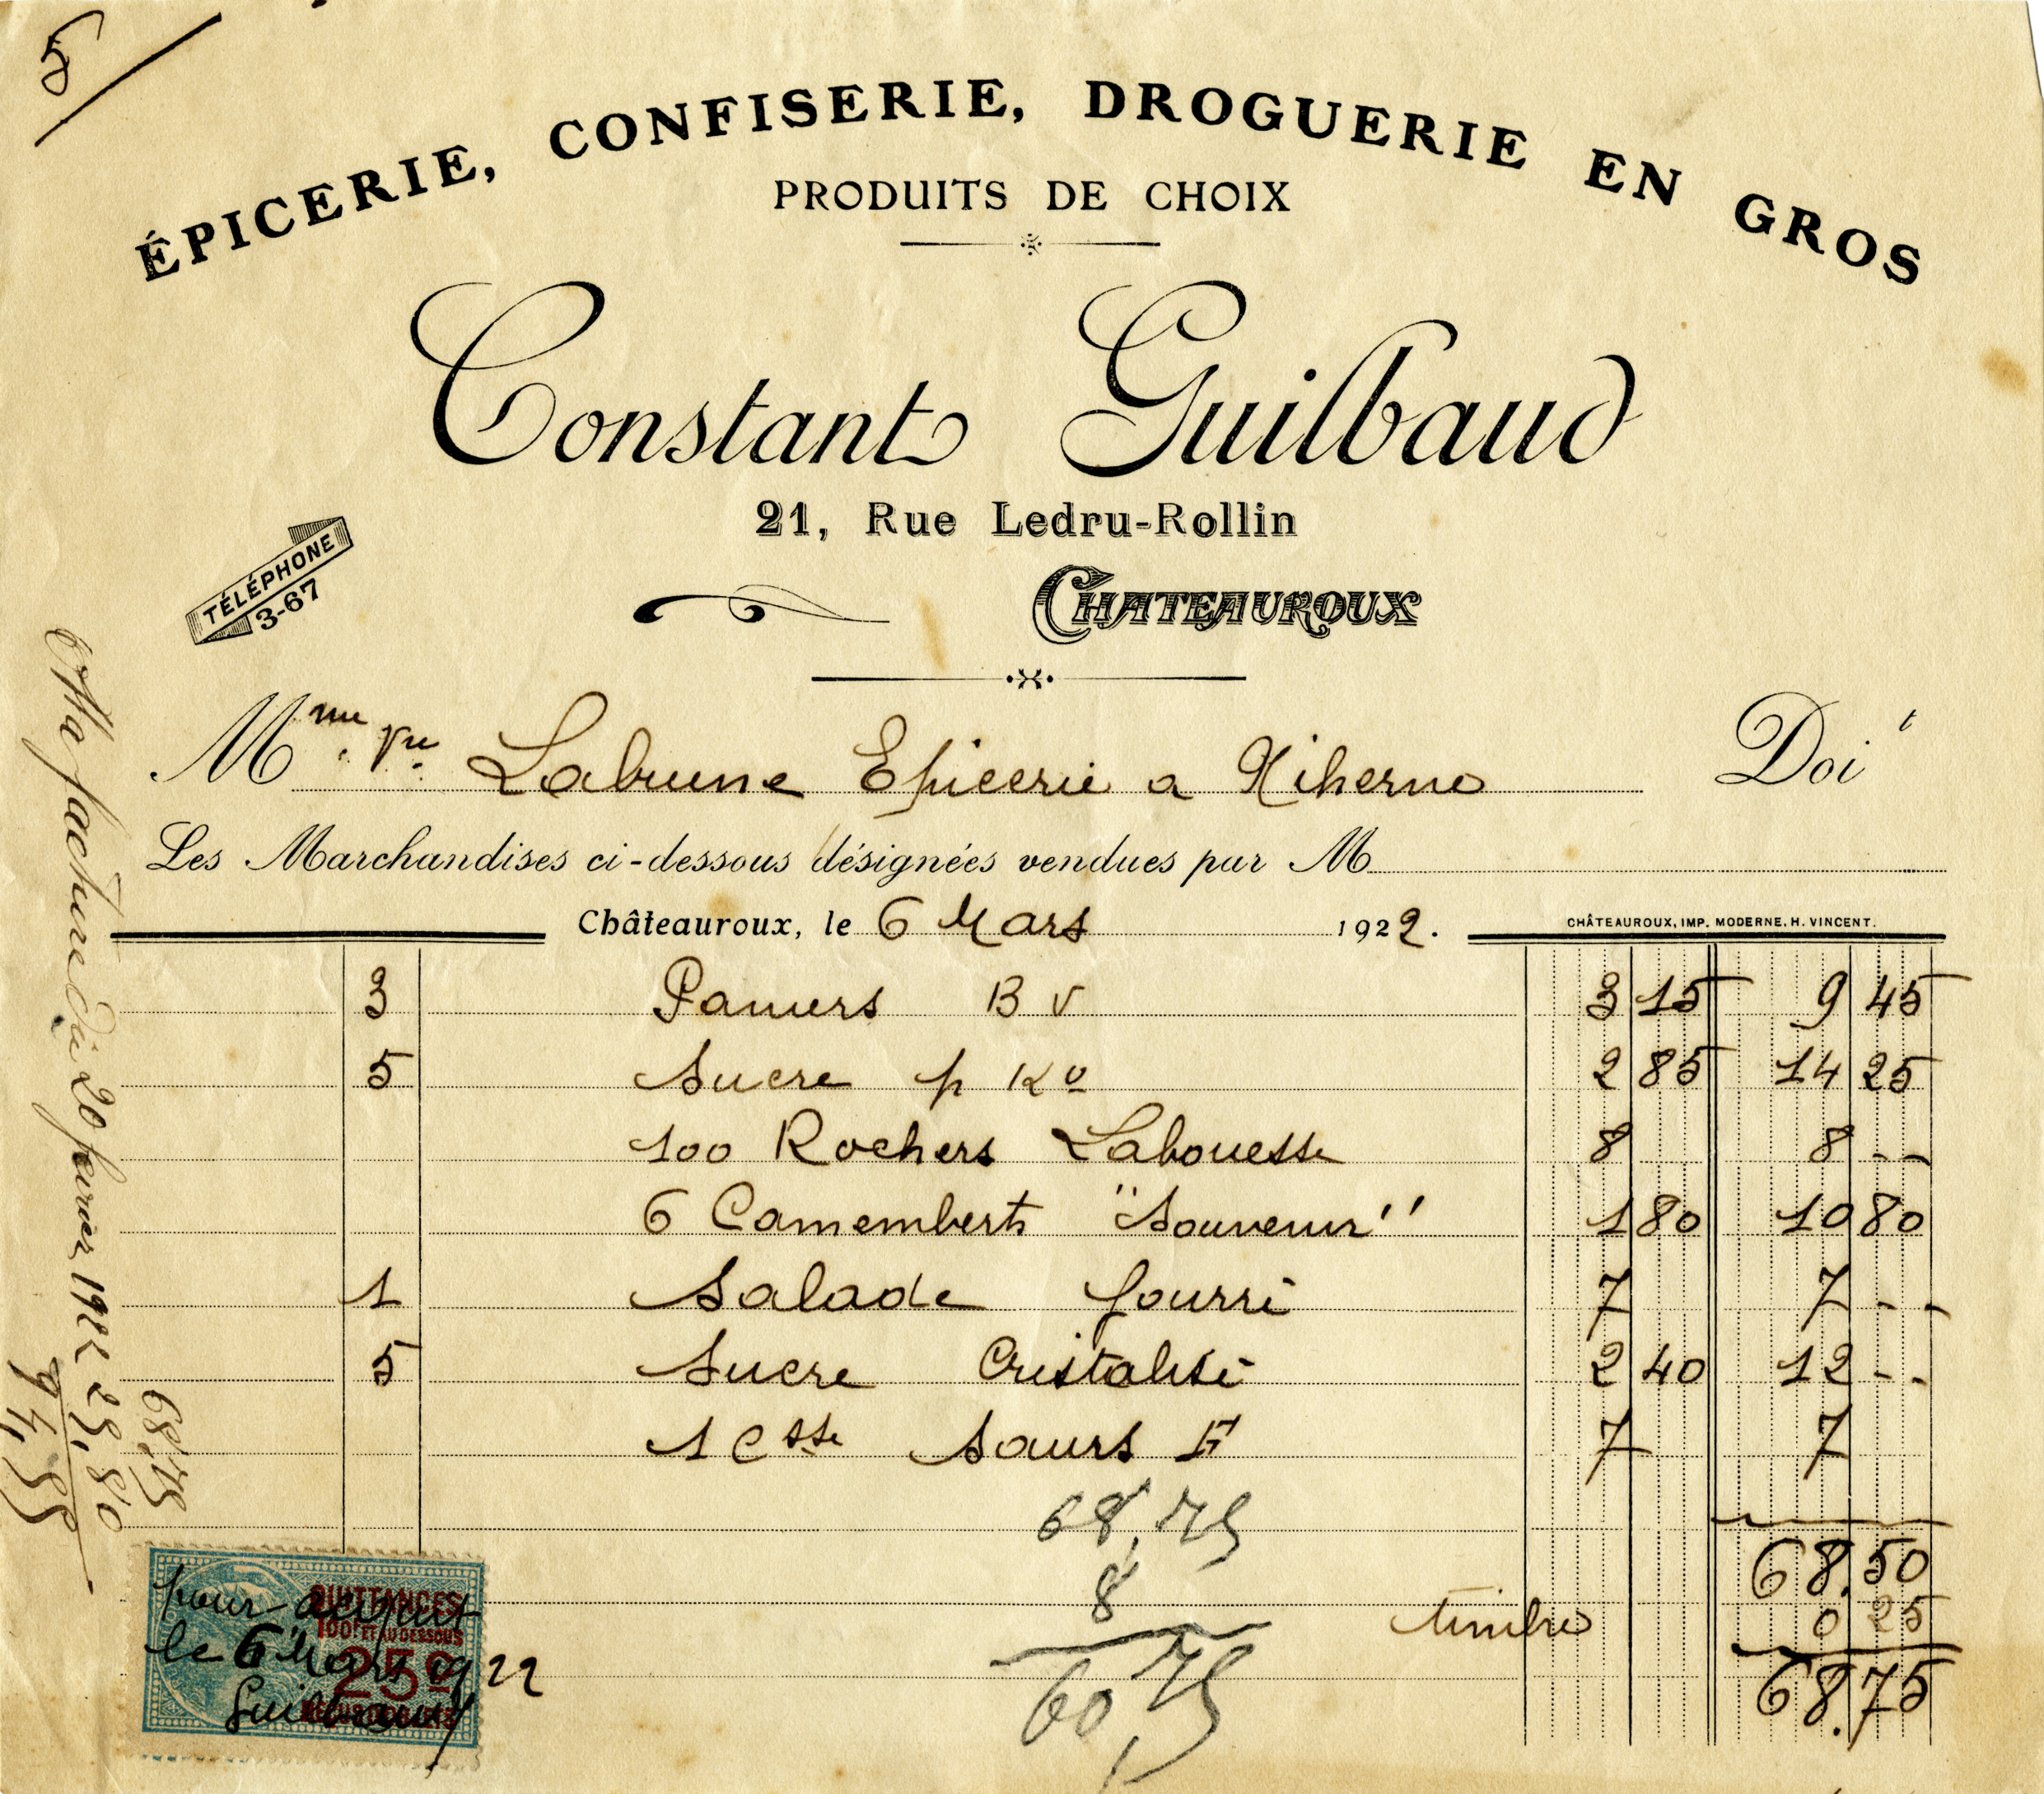 5
ÉPICERIE, CONFISERIE, DROGUERIE EN GROS
PRODUITS DE CHOIX
Constant Guilbaud
21, Rue Ledru-Rollin
CHATEAUROUX
TÉLÉPHONE
3-67
Mme Vve Labrune Epicerie a Niherne Doit
Les Marchandises ci-dessous désignées vendues par M
Châteauroux, le 6 Mars 1922.
CHÂTEAUROUX, IMP. MODERNE. H. VINCENT.
3 Paniers B V 3 15 9 45
5 Sucre p Ko 2 85 14 25
100 Rochers Labouesse 8 8 - -
6 Camemberts "Souvenir" 1 80 10 80
1 Salade fourré 7 7 - -
5 Sucre Cristalisé 2 40 12 - -
1 Csse Saurs F 7 7
68.50
timbre 0 25
68.75
68,75
8
60,75
Ma facture du 20 février 1922 25,80
68,75
94,55
QUITTANCES
100F ET AU DESSOUS
25c
pour acquit
le 6 Mars 1922
Guilbaud